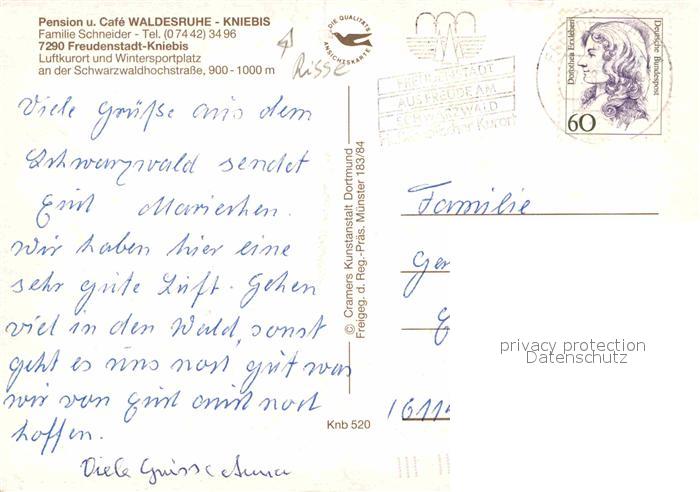 Pension u. Café WALDESRUHE - KNIEBIS
Familie Schneider - Tel. (0 74 42) 34 96
7290 Freudenstadt-Kniebis
Luftkurort und Wintersportplatz
an der Schwarzwaldhochstraße, 900-1000 m
Risse
DIE QUALITÄTS
ANSICHTSKARTE
FREUDENSTADT
AUS FREUDE AM
SCHWARZWALD
Kurort
Dorothea Erxleben
Deutsche Bundespost
60
Viele Grüße aus dem
Schwarzwald sendet
Mariechen.
Wir haben hier eine
sehr gute Luft. Gehen
viel in den Wald, sonst
geht es uns noch gut was
wir von auch noch
hoffen.
Viele Grüsse Anna
© Cramers Kunstanstalt Dortmund
Freigeg. d. Reg.-Präs. Münster 183/84
Knb 520
Familie
Ger
E
privacy protection
Datenschutz
1611